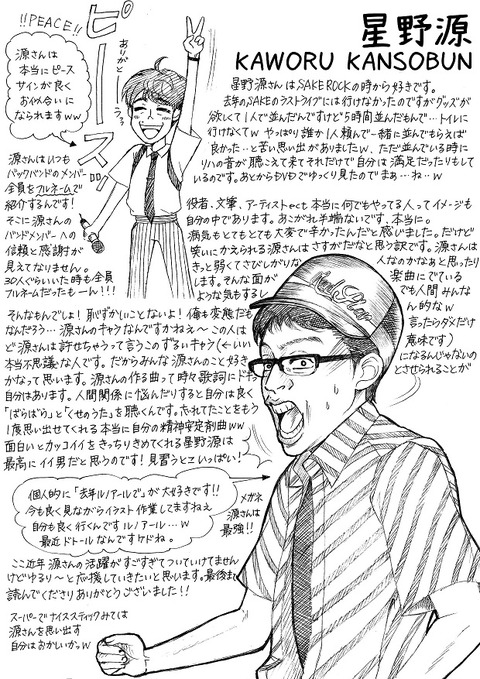 星野源
KAWORU KANSOBUN
!!PEACE!!
ピース
ありがとうっ
源さんは
本当にピース
サインが良く
お似合いに
なられますww
源さんはいつも
バックバンドのメンバー
全員をフルネームで
紹介するんです!
そこに源さんの
バンドメンバーへの
信頼と感謝が
見えてなりません。
30人ぐらいいた時も全員
フルネームだったもーん!!!
星野源さんはSAKEROCKの時から好きです。
去年のSAKEのラストライブには行けなかったのですがグッズが
欲しくて1人で並んだんですけど5時間並んだもんで…トイレに
行けなくてw やっぱり誰か1人頼んで一緒に並んでもらえば
良かった…と苦い思い出がありましたw、ただ並んでいる時に
リハの音が聴こえて来てそれだけで自分は満足だったりもして
いるのです。あとからDVDでゆっくり見たのでまぁ…ね…w
役者、文筆、アーティストect本当に何でもやってる人ってイメージも
自分の中であります。あこがれ半端ないです、本当に。
病気もとてもとても大変で辛かったんだと感じました。だけど
笑いにかえられる源さんはさすがだなと思う訳です。源さんは
きっと弱くてさびしがりな
人なのかなぁと思ったり
します。そんな面が
楽曲にでている
ような気もするし
でも人間みんな
そんなもんでしょ!恥ずかしいことないよ!俺も変態だも
ん的なw
なんだろう…源さんのキャラなんですかねぇ〜この人は
言ったらダメだけ
ど源さんは許せちゃうって言うこのずるいキャラ(←いい
意味です)
本当不思議な人です。だからみんな源さんのこと好き
になるんじゃないの
かなって思います。源さんの作る曲って時々歌詞にドキッ
とさせられることが
自分はあります。人間関係に悩んだりすると自分は良く
「ばらばら」と「くせのうた」を聴くんです。忘れてたことをもう
1度思い出させてくれる本当に自分の精神安定剤曲ww
面白いとカッコイイをきっちりきめてくれる星野源は
最高にイイ男だと思うのです!見習うとこいっぱい!
個人的に「去年ルノアールで」が大好きです!!
今も良く見ながらイラスト作業してますねえ
自分も良く行くんですルノアール…w
最近ドトールなんですケドね。
メガネ
源さんは
最強!!
ここ近年 源さんの活躍がすごすぎてついていけてません
けどゆるり〜と応援していきたいと思います。最後まで
読んでくださりありがとうございました!!
スーパーでナイススティックみては
源さんを思い出す
自分はおかしいかっw